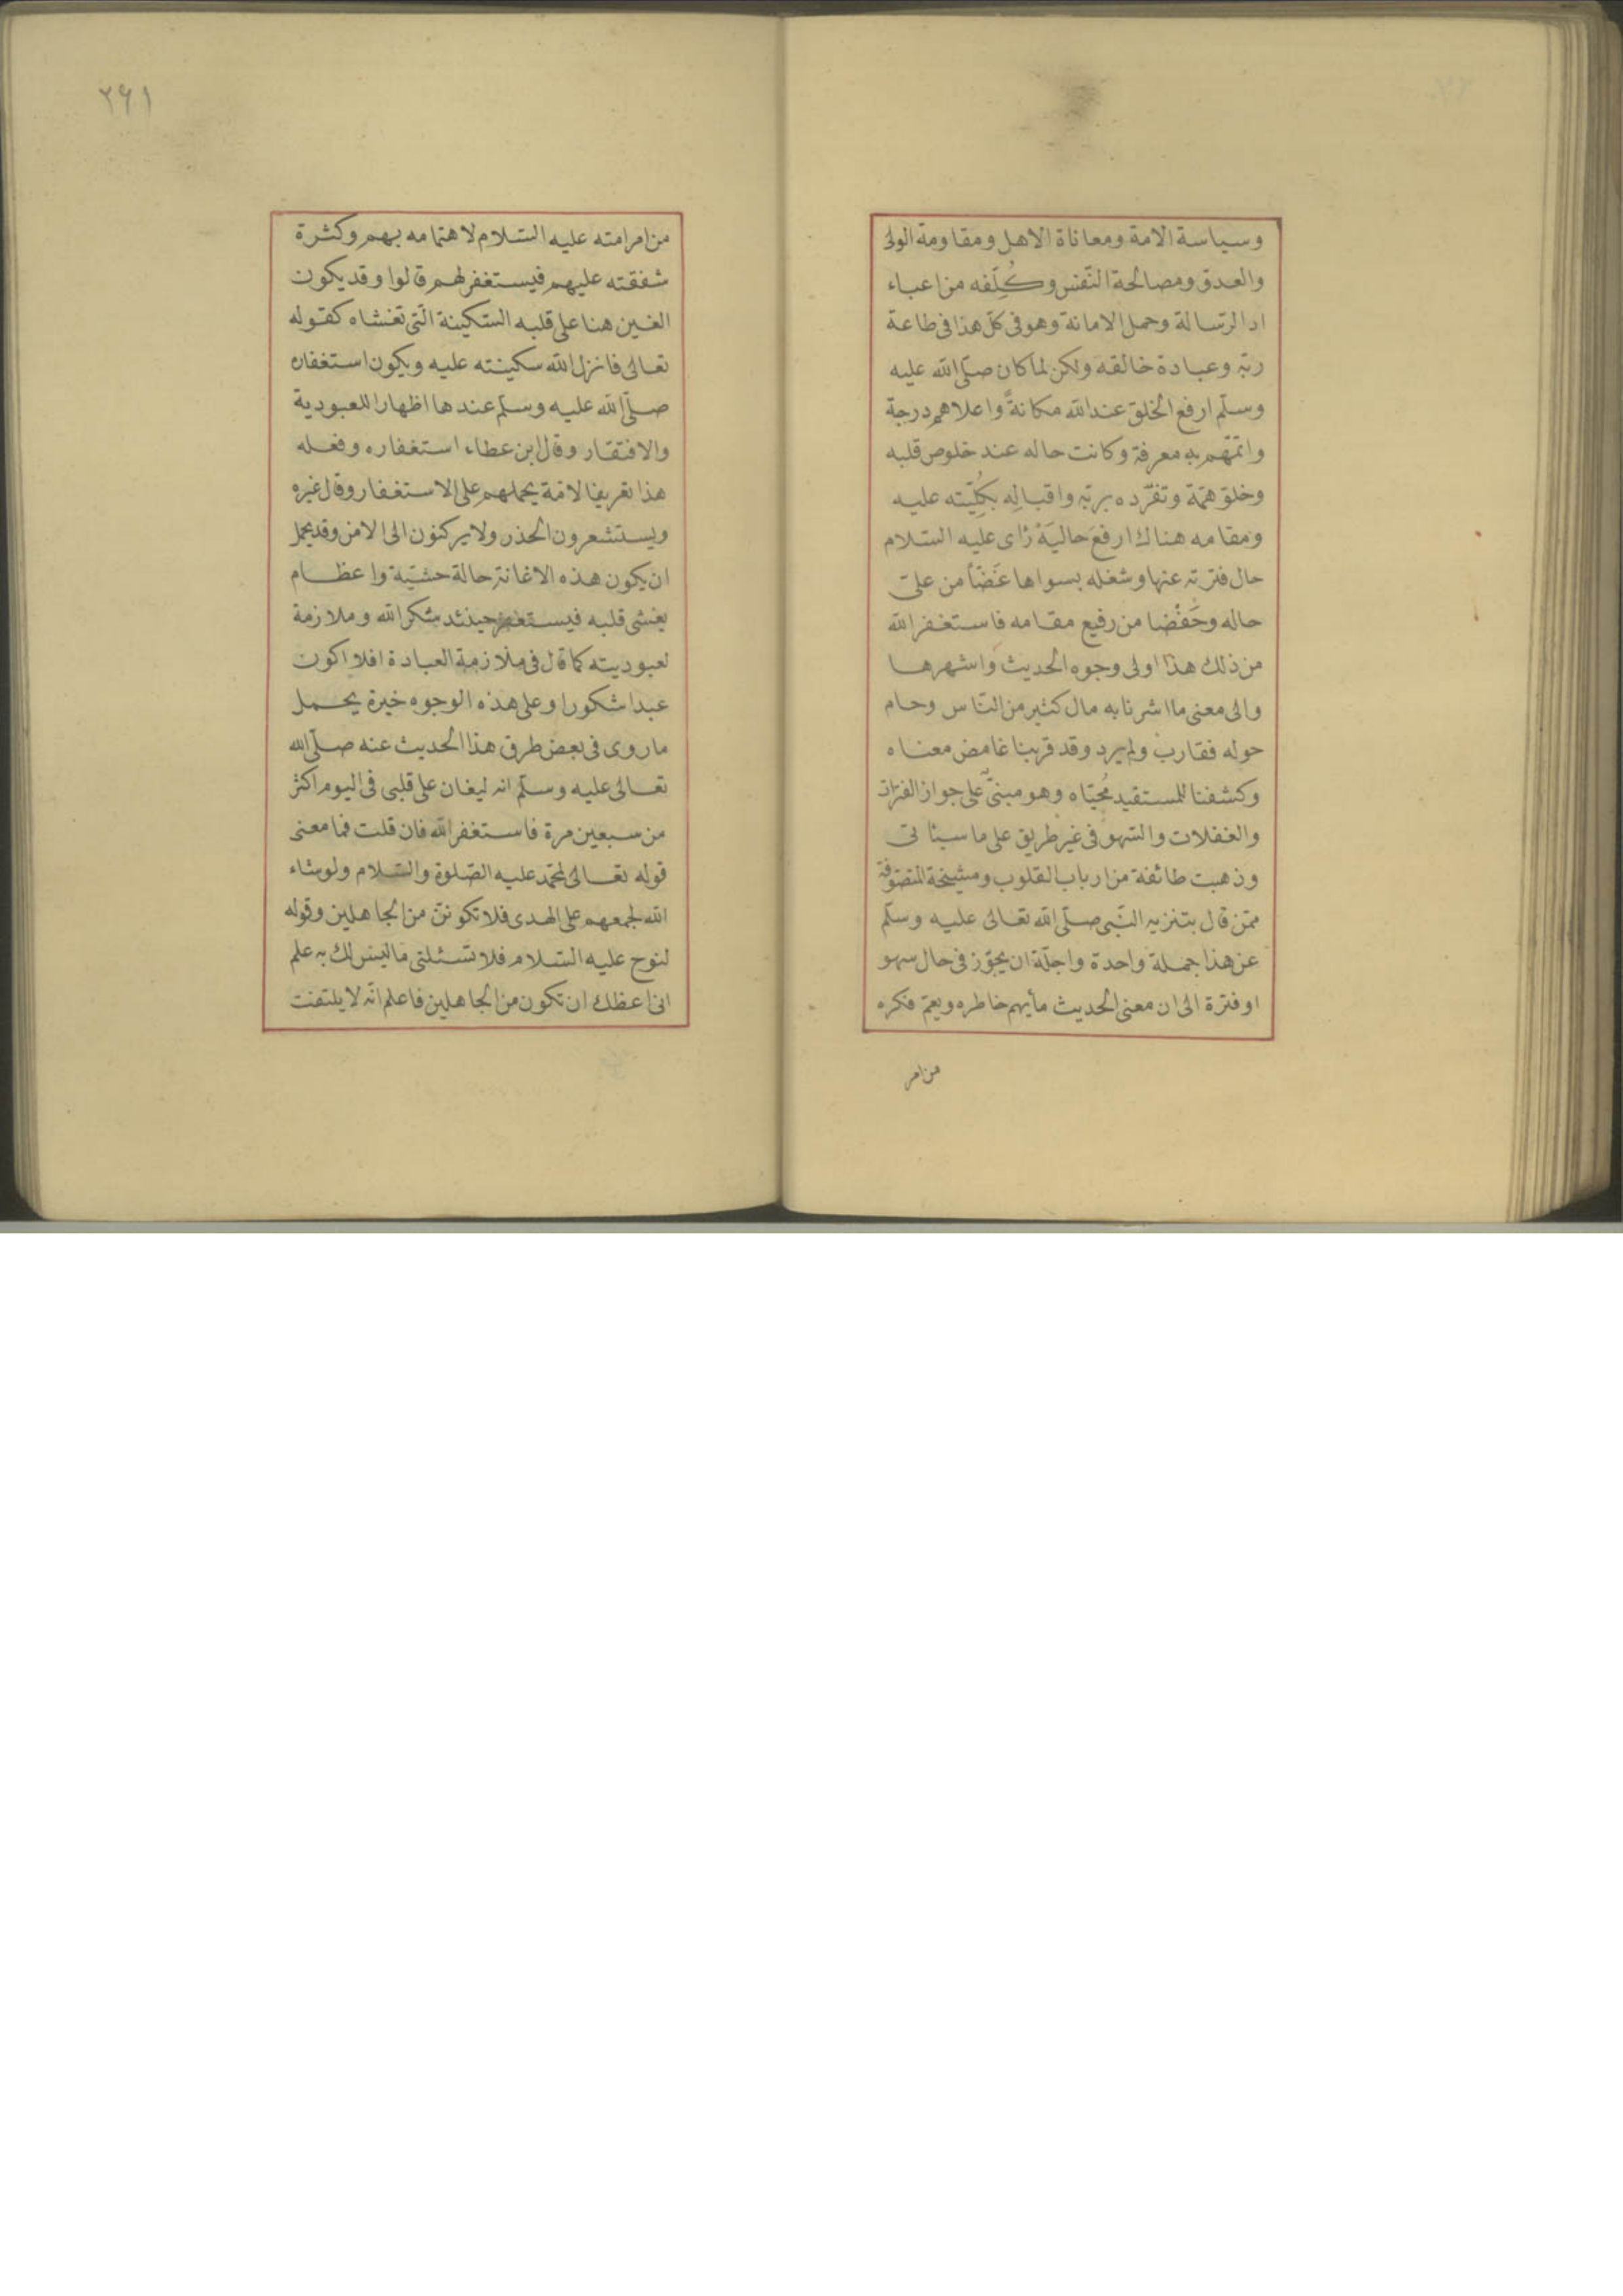 وسياسة الامة ومعاناة الاهل ومقاومة الولى
والعدوّ ومصالحة النّفس وكُلِّفه من اعباء
ادا الرّسالة وحمل الامانة وهو فى كلّ هذا فى طاعة
ربّه وعبادة خالقه ولكن لما كان صلّى الله عليه
وسلّم ارفع الخلق عند الله مكانةً واعلاهم درجة
واتمّهم به معرفة وكانت حاله عند خلوص قلبه
وخلق همّة وتفرّده بربّه واقبالِه بكُلِّيّته عليه
ومقامه هناك ارفعَ حاليَهْ رُاى عليه السّلام
حال فترته عنها وشغله بسواها غَضّاً من علىّ
حاله وخَفْضا من رفيع مقامه فاستغفر الله
من ذلك هذا اولى وجوه الحديث واشهرها
والى معنى ما اشرنا به مال كثير من النّاس وحام
حوله فقارب ولم يرد وقد قربنا غامض معناه
وكشفنا للمستفيد مُحيّاه وهو مبنىّ على جواز الفترات
والغفلات والسّهو فى غير طريق على ما سيئاتى
وذهبت طائفة من ارباب القلوب ومشيخة المتصوّفة
ممّن قال بتنزيه النّبى صلّى الله تعالى عليه وسلّم
عن هذا جملة واحدة واجلّه ان يجوّز فى حال سهو
او فترة الى ان معنى الحديث ما يهم خاطره ويعمّ فكره
من امر
٢٦١
من امر امته عليه السّلام لاهتمامه بهم وكثرة
شفقته عليهم فيستغفر لهم قالوا وقد يكون
الغين هنا على قلبه السّكينة الّتى تغشاه كقوله
تعالى فانزل الله سكينته عليه ويكون استغفاره
صلّى الله عليه وسلّم عندها اظهارا للعبودية
والافتقار وقال ابن عطاء استغفاره وفعله
هذا تعريفا لامّة يحملهم على الاستغفار وقال غيره
ويستشعرون الحذر ولا يركنون الى الامن وقد يحمل
ان يكون هذه الاغانة حالة خشية واعظام
يغشى قلبه فيستغفر حينئد شكر الله وملازمة
لعبوديته كما قال فى ملازمة العبادة افلا اكون
عبدا شكورا وعلى هذه الوجوه خيرة يحمل
ما روى فى بعض طرق هذا الحديث عنه صلّى الله
تعالى عليه وسلّم انه ليغان على قلبى فى اليوم اكثر
من سبعين مرة فاستغفر الله فان قلت فما معنى
قوله تعالى لمحمّد عليه الصّلوة والسّلام ولو شاء
الله لجمعهم على الهدى فلا تكوننّ من الجاهلين وقوله
لنوح عليه السّلام فلا تسئلنى ما ليس لك به علم
انى اعظك ان تكون من الجاهلين فاعلم انّه لا يلتفت